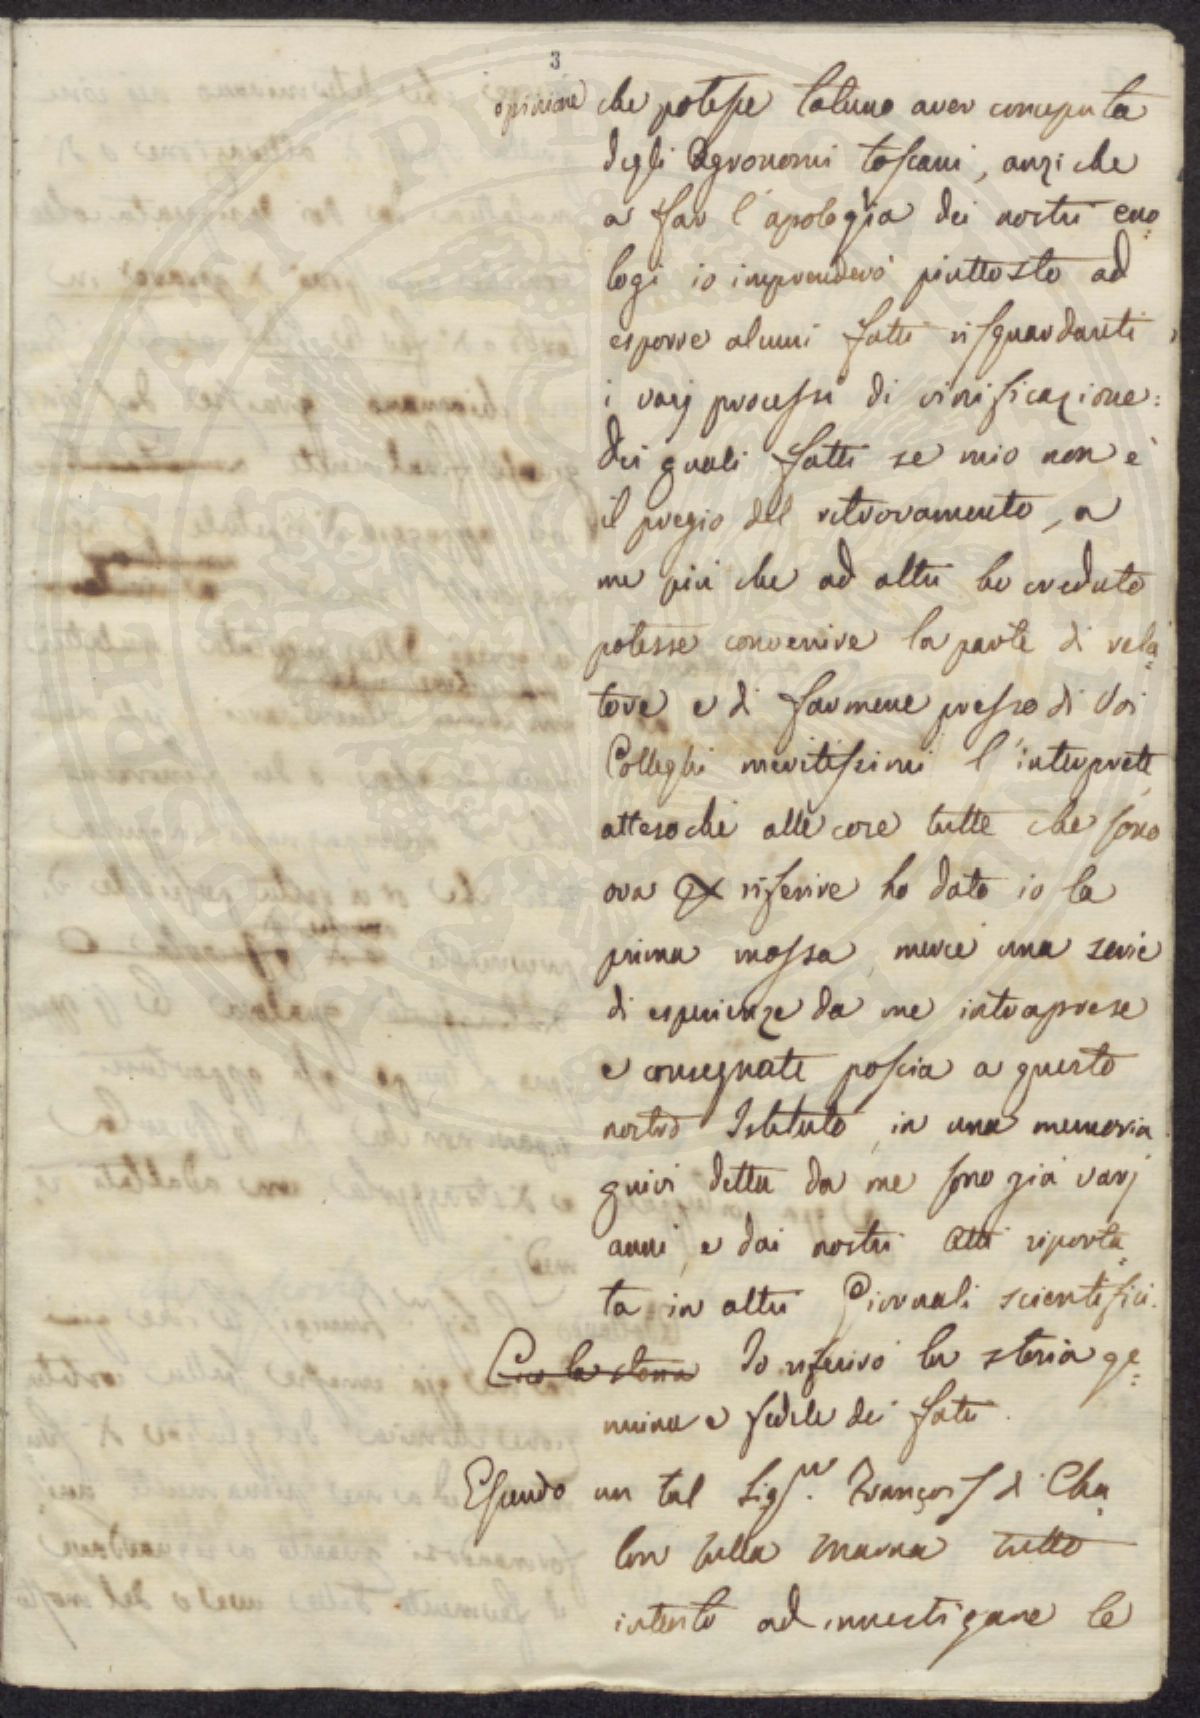 3
opinione che potesse taluno aver concepita
degli Agronomi toscani, anzi che
a far l'apologia dei nostri eno=
logi io imprenderò piuttosto ad
esporre alcuni fatti risguardanti
i varj processi di vinificazione:
dei quali fatti se mio non è
il pregio del ritrovamento, a
me più che ad altri ho creduto
potesse convenire la parte di rela=
tore e di farmene presso di Voi
Colleghi meritissimi l'interprete,
attesochè alle cose tutte che sono
ora riferire ho dato io la
prima mossa, mercè una serie
di esperienze da me intraprese
e consegnate poscia a questo
nostro Istituto, in una memoria
quivi detta da me sono già varj
anni, e dai nostri Atti riporta=
ta in altri Giornali scientifici.
Ecco la storia Io riferirò la storia ge=
nuina e fedele dei fatti.
Essendo un tal Sigr. François di Cha=
lon sulla Marna tutto
intento ad investigare le